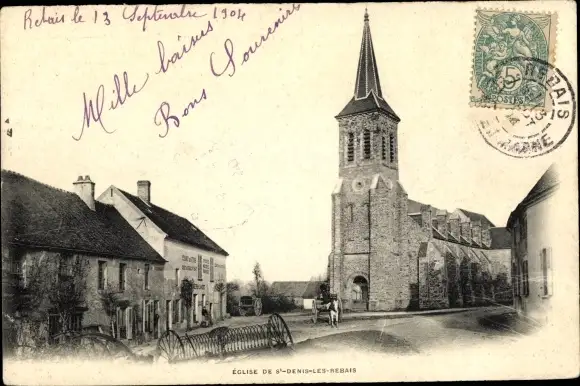 Rebais le 13 Septembre 1904
Mille baisers
Bons Souvenirs
5
POSTES
REBAIS
ET-MARNE
ÉGLISE DE St-DENIS-LES-REBAIS